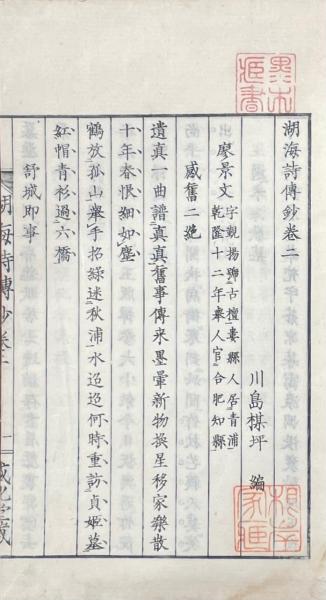 湖海詩傳鈔卷二
川島楳坪 編
廖景文 字覲揚號古檀婁縣人居青浦
乾隆十二年舉人官合肥知縣
感舊二絶
遺真一曲譜真真舊事傳来墨暈新物換星移家樂散
十年春恨細如塵
鶴放孤山舉手招綠迷秋浦水迢迢何時重訪貞姬墓
紅帽青衫過六橋
舒城即事
湖海詩傳鈔卷二 一